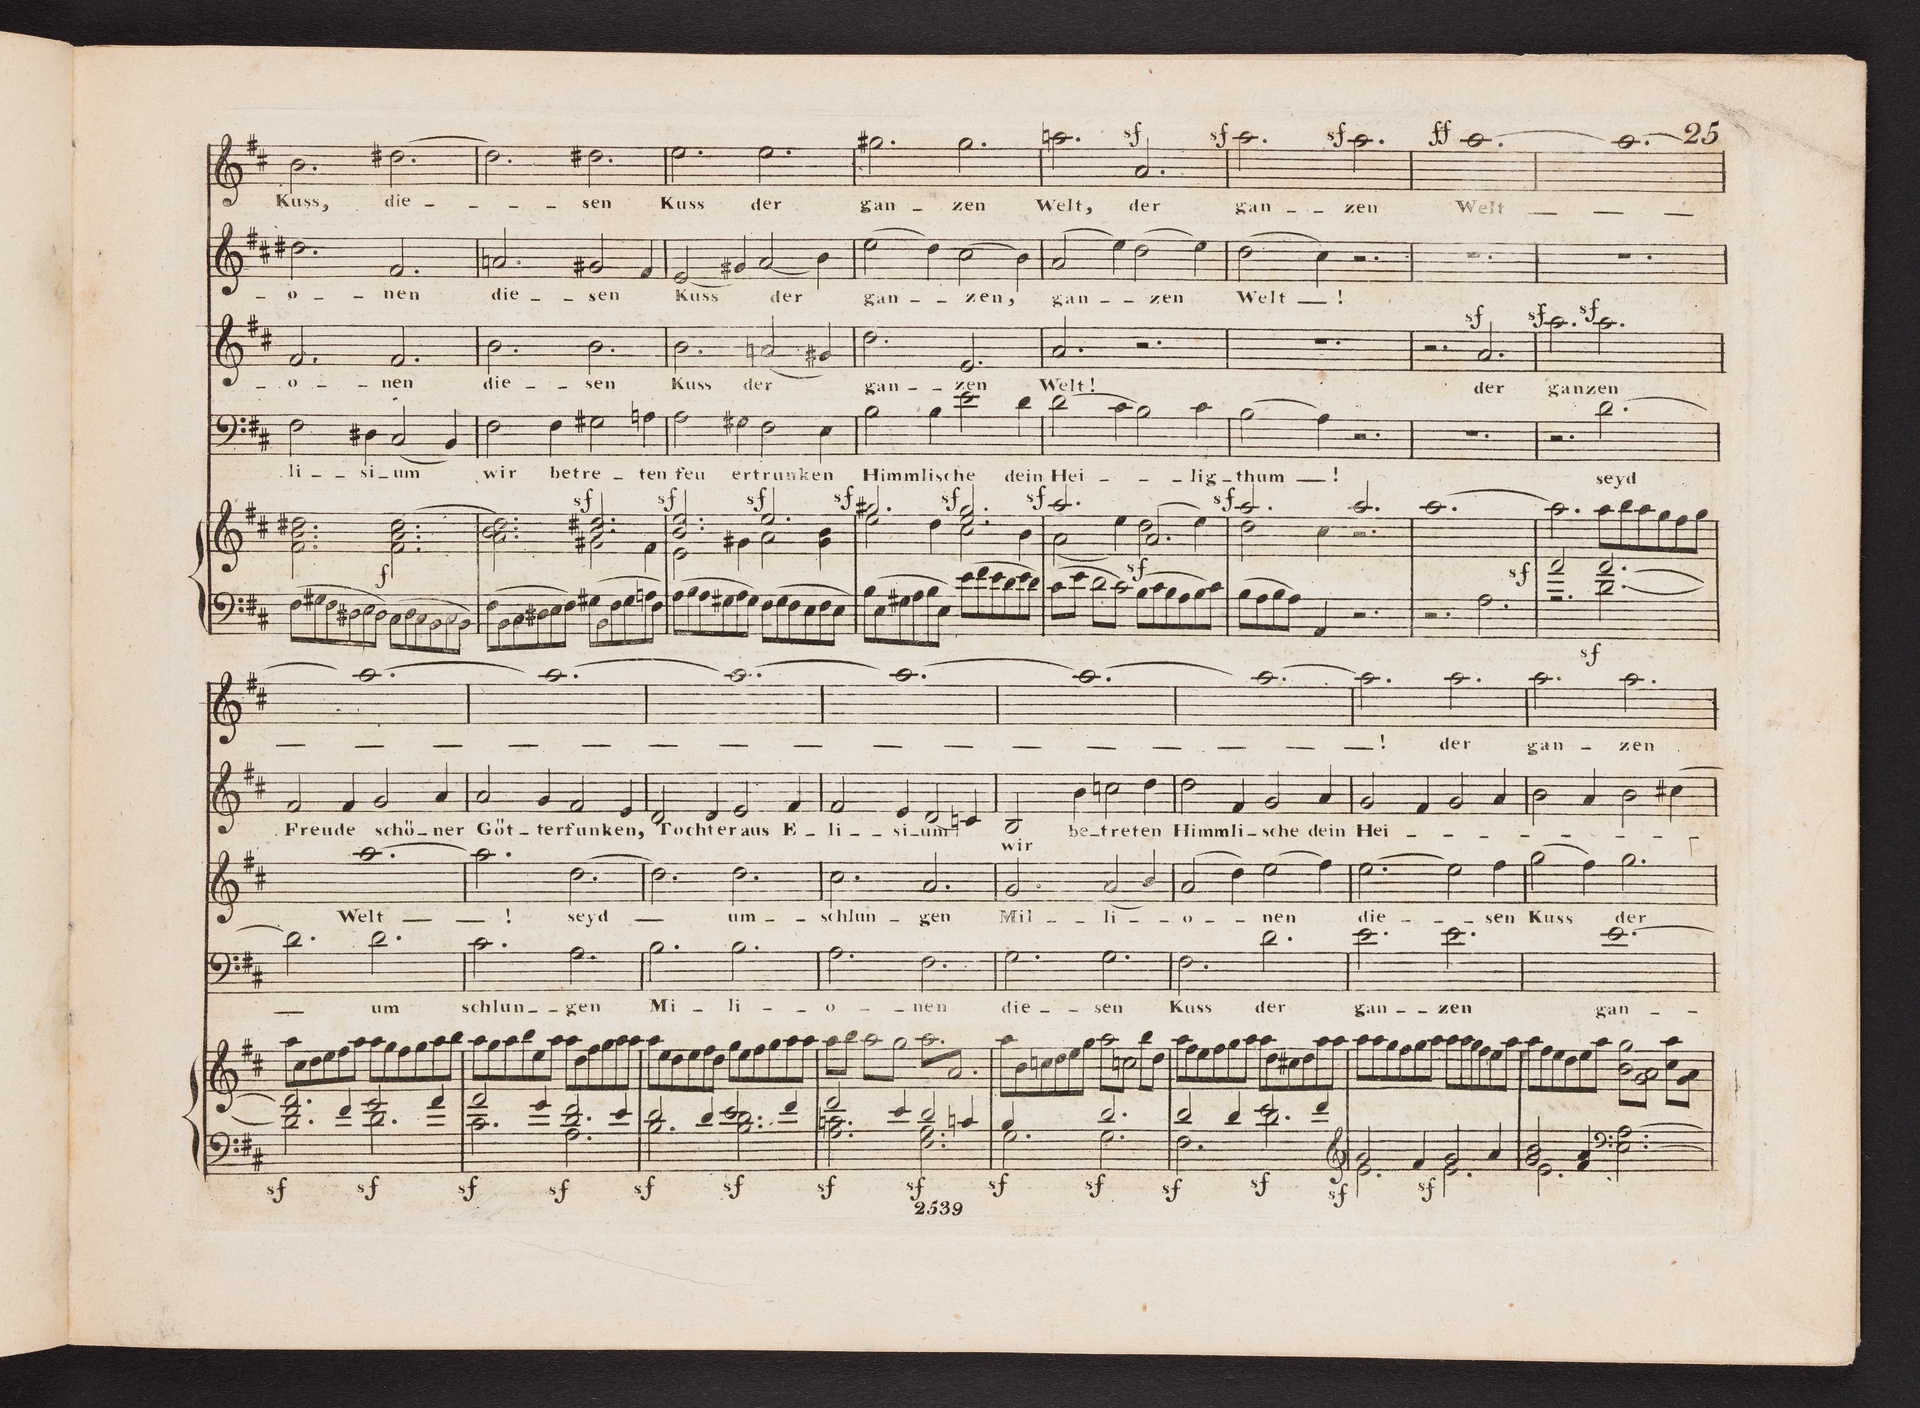 25
sf sf sf ff
Kuss, die - - - - sen Kuss der gan - zen Welt, der gan - - zen Welt — — —
- o - - nen die - - sen Kuss der gan - - zen, gan - - zen Welt — !
sf sf sf
- o - - nen die - - sen Kuss der gan - - zen Welt! der ganzen
li - - si - um wir betre - ten feu ertrunken Himmlische dein Hei - - - lig - thum — ! seyd
sf sf sf sf sf sf sf
f sf sf
sf
— — — — — — — — — — — — — — ! der gan - zen
Freude schö - ner Göt - terfunken, Tochter aus E - li - si - um! wir be - treten Himmli - sche dein Hei - - - - - - - -
Welt — — ! seyd — um - - schlun - gen Mil - - li - - o - - nen die - - - sen Kuss der
— um schlun - - gen Mi - li - - o - - nen die - - sen Kuss der gan - - zen gan - -
sf sf sf sf sf sf sf sf sf sf sf sf sf sf
2539